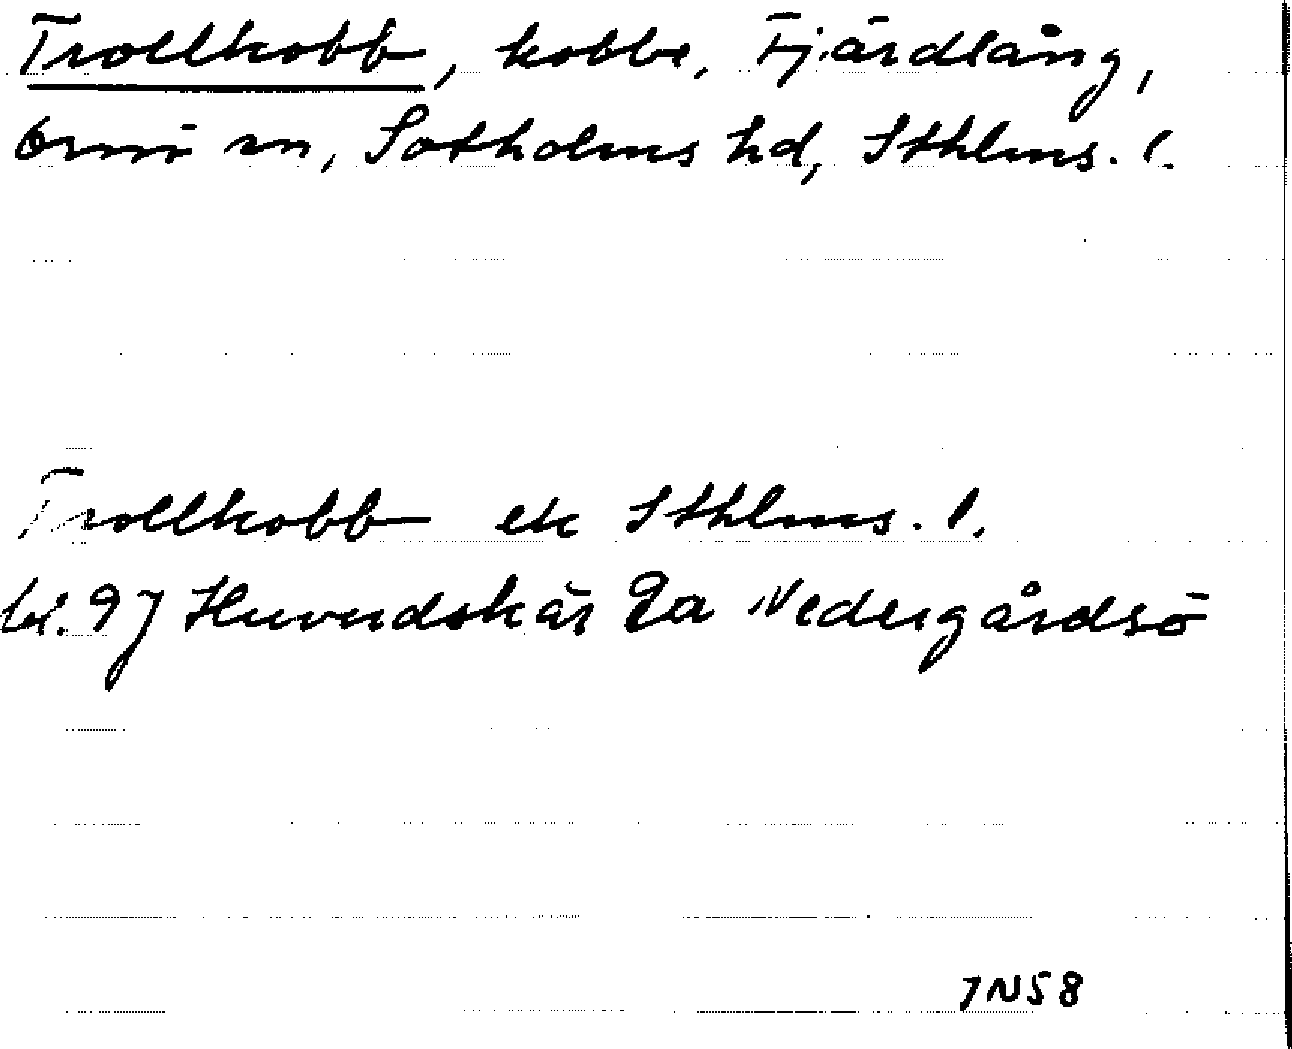 Trollkobb, kobbe, Fjärdlång,
Ornö sn, Sotholms hd, Sthlms. l.
Trollkobb ek Sthlms. l.
bl. 97 Huvudskär 2a Nedergårdsö
7N58